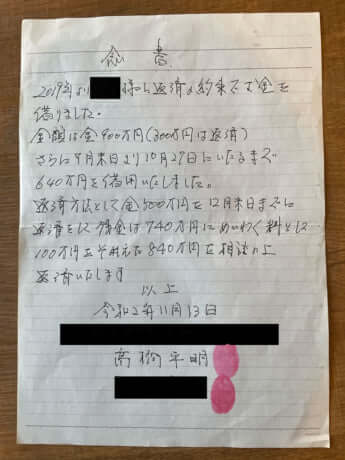 念書
2019年より 様から返済の約束でお金を
借りました。
金額は金900万円(300万円は返済)
さらに9月末日より10月27日にいたるまで
640万円を借用いたしました。
返済方法として金500万円を12月末日までに
返済をし 残金は740万円にめいわく料として
100万円をそえた840万円を相談の上
返済いたします
以上
令和2年11月13日
高橋平明